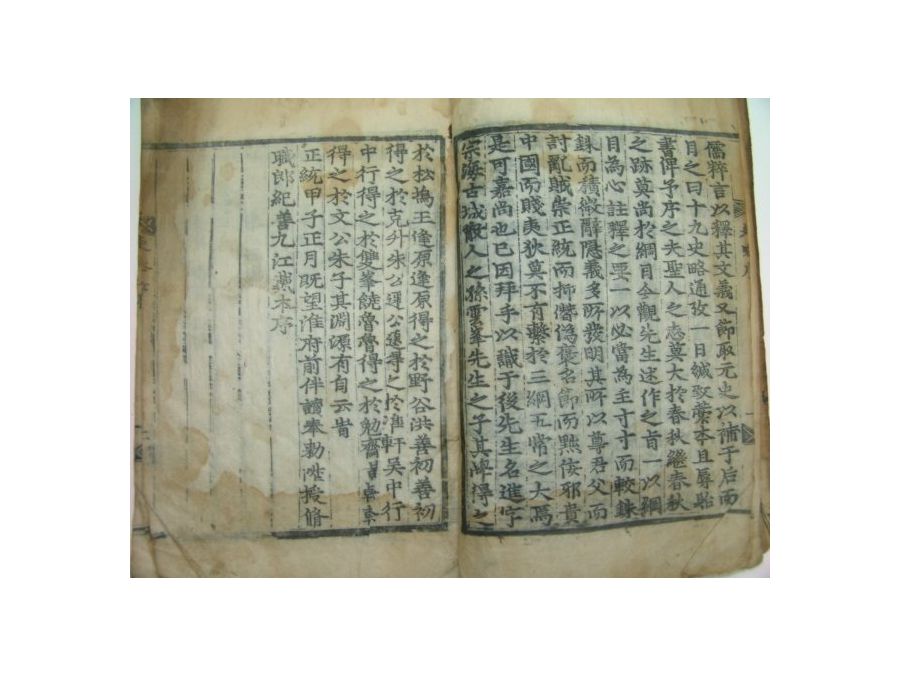 儒粹言以釋其文義又節取元史以補于后而
目之曰十九史略通攷一日緘致藁本且辱貽
書俾予序之夫聖人之志莫大於春秋繼春秋
之跡莫尚於綱目今觀先生述作之旨一以綱
目為心註釋之要一以必當為主寸寸而較銖
銖而積微辭隱義多所發明其所以尊君父而
討亂賊崇正統而抑僭偽褒名節而黜佞邪貴
中國而賤夷狄莫不有繫於三綱五常之大焉
是可嘉尚也已因拜手以識于後先生名進字
宗海古城人之孫雲峯先生之子其學得之
於松塢王逢原逢原得之於野谷洪善初善初
得之於克升朱公遷公遷得之於準軒吳中行
中行得之於雙峯饒魯魯得之於勉齋
得之於文公朱子其淵源有自云旹
正統甲子正月既望淮府前伴讀奉勅陞授脩
職郎紀善九江本序